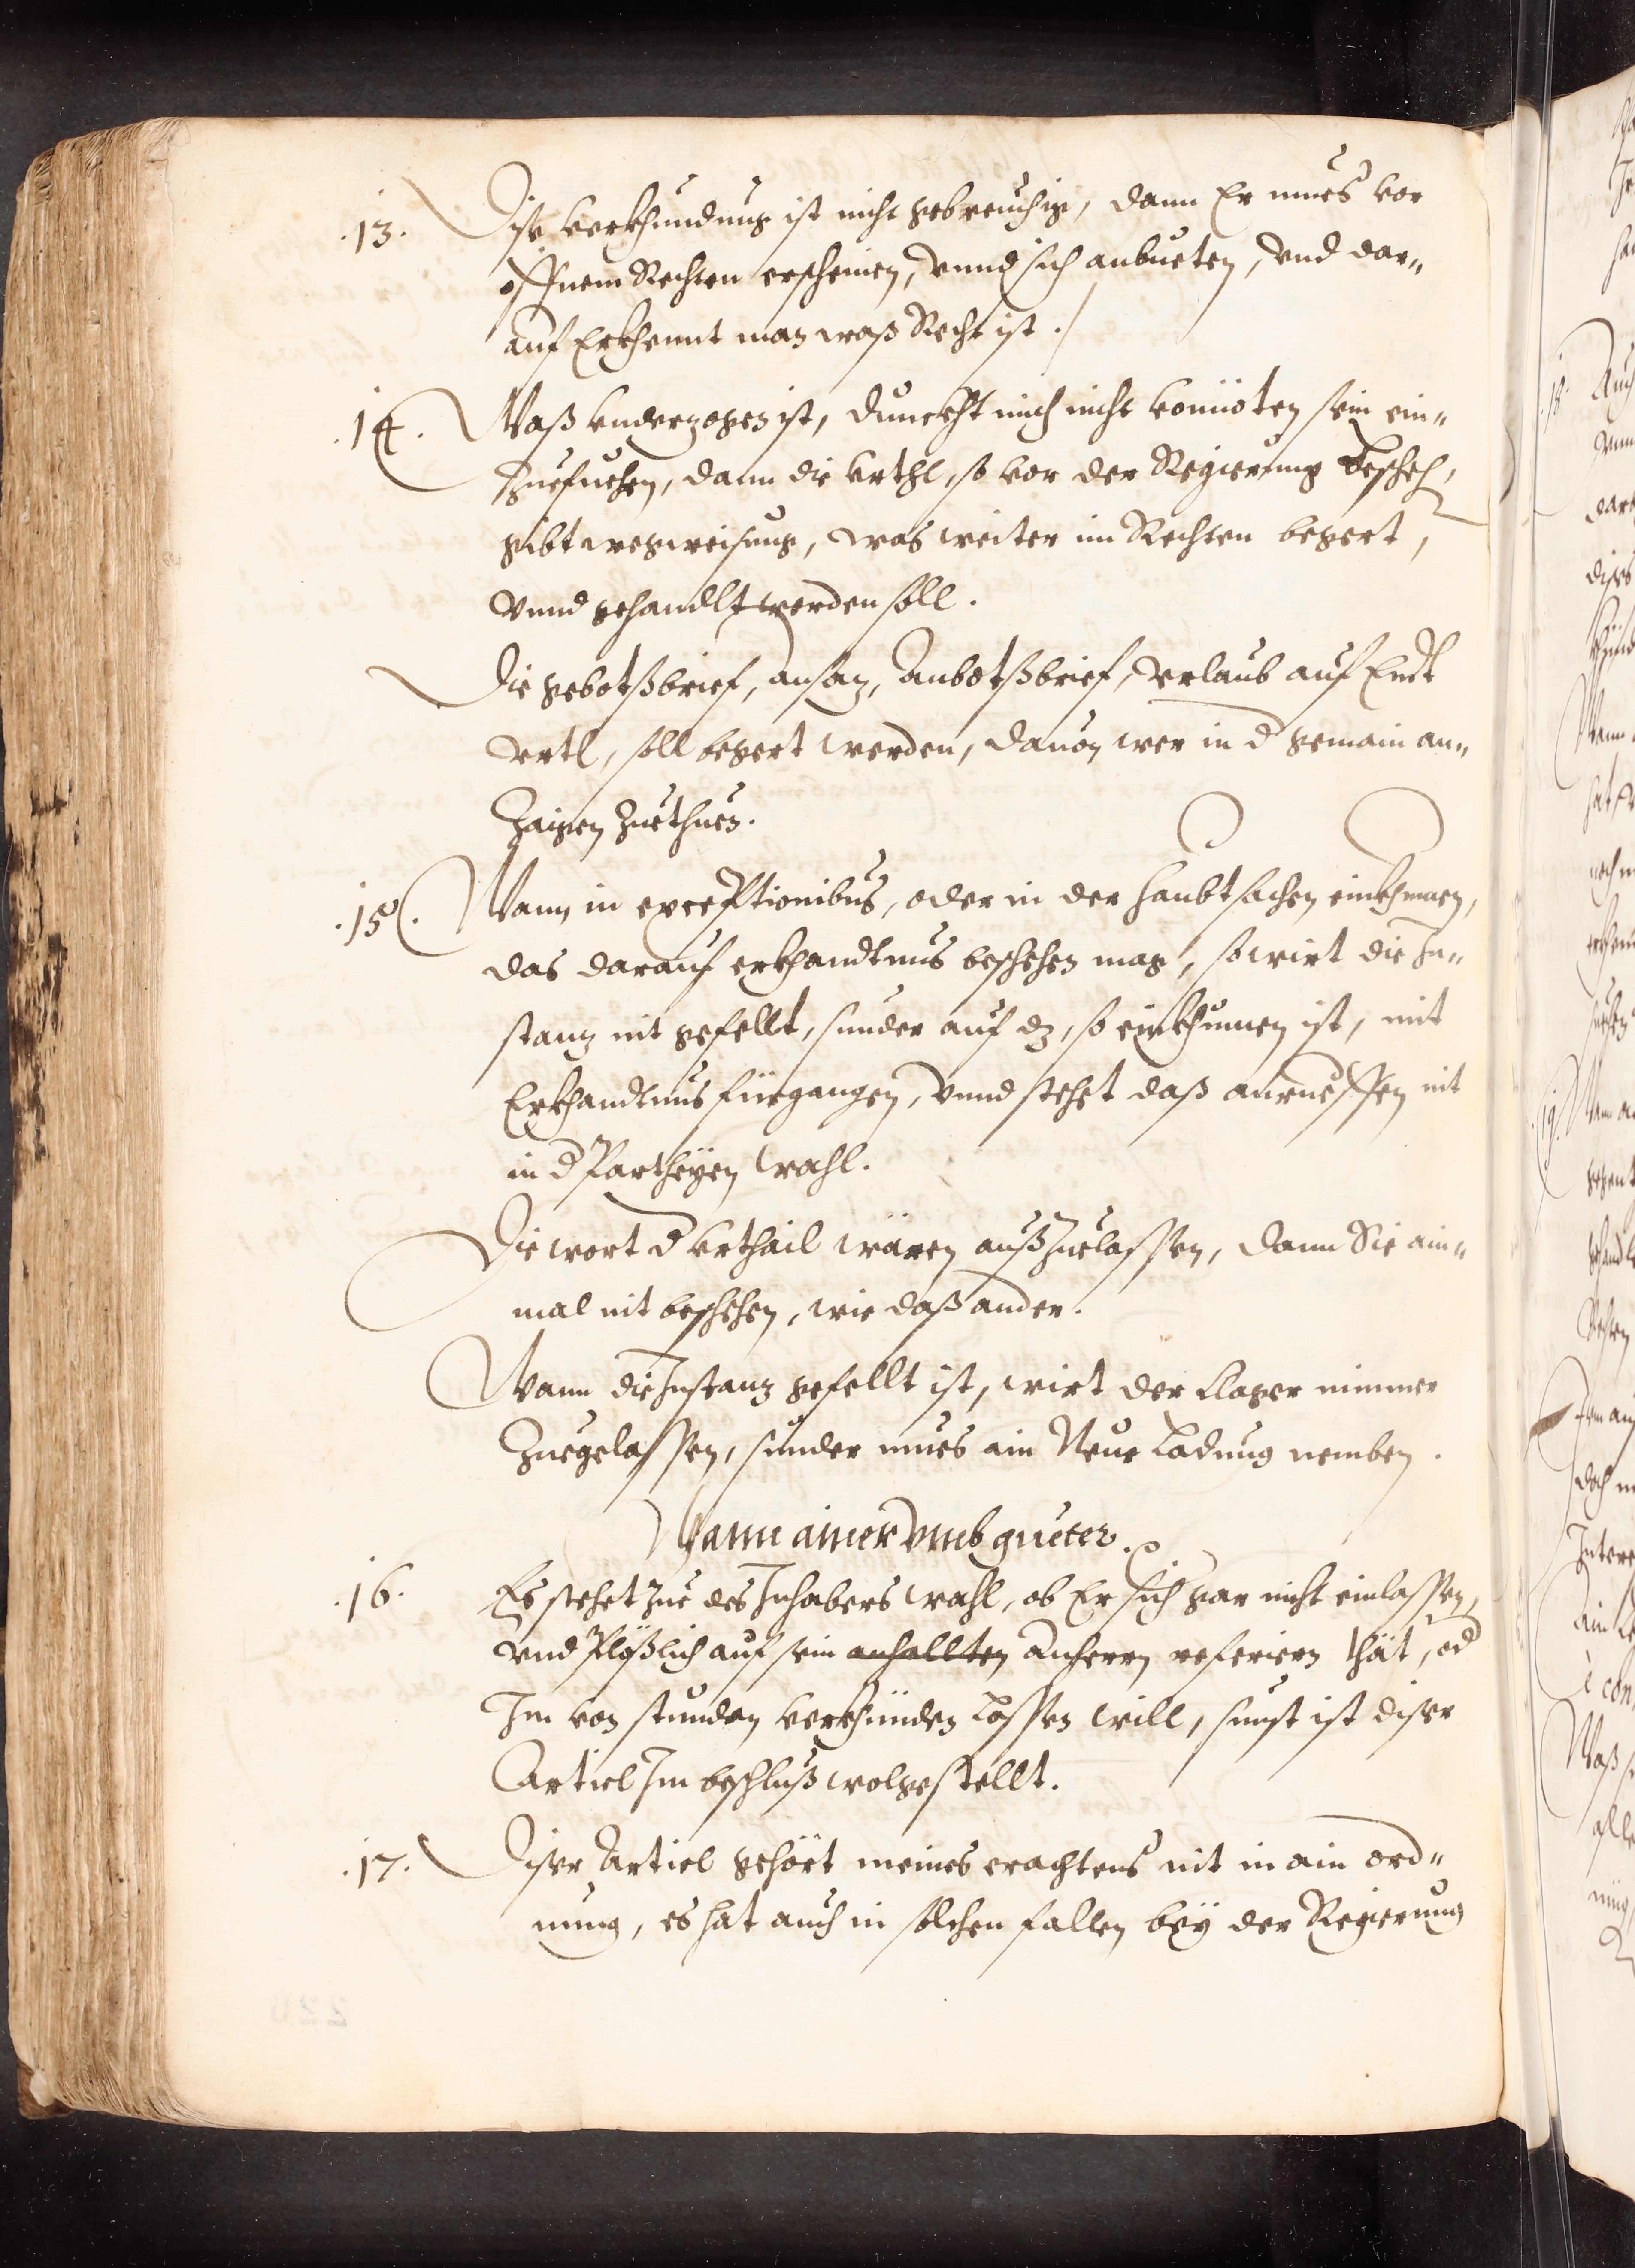 .13. Dise verkhundung ist nicht gebreuchig, dann Er mues vor
offnem Rechten erscheinen, vnnd sich anbueten, vnd dar„
auf Erkhennt man waß Recht ist ./
.14. Waß vnderzogen ist, dunckht mich nicht vonnöten sein ein„
Zuesuehen, dann die vrthl, so vor der Regierung beschech,
gibt wegweisung, was weiter im Rechten begert,
vnnd gehandlt werden soll.
Die gebotßbrief, ansaz, Anbotßbrief, verlaub auf Endt
vrtl, soll begert werden, dauon wer in d gemain an„
Zaigen Zuethuen.
.15. Wann in exceptionibus, oder in der haubtsachen einkhumen,
das darauf erkhandtnus beschehen mag, so wirt die In„
stanz nit gefellt, sunder auf dz, so einkhumen ist, mit
Erkhandtnus fürgangen, vnnd stehet daß anrueffen nit
in d Partheyen wahl.
Die wort d vrthail wären außzuelassen, dann Sie ain„
mal nit beschehen, wie daß ander.
Wann die Instanz gefellt ist, wirt der Clager nimmer
Zuegelassen, sunder mues ain Neue Ladung nemben.
Wann ainer vmb güeter.
.16. Es stehet Zue des Inhabers wahl, ob Er sich gar nicht einlassen,
vnd Plößlich auf sein anhallten anherrn referiern thät, od
Im von stunden verkhünden lassen will, sunst ist diser
Articl Im beschluß wolgestellt.
.17. Diser Articl gehört meines erachtens nit in ain ord„
nung, es hat auch in solchen fallen bey der Regierung